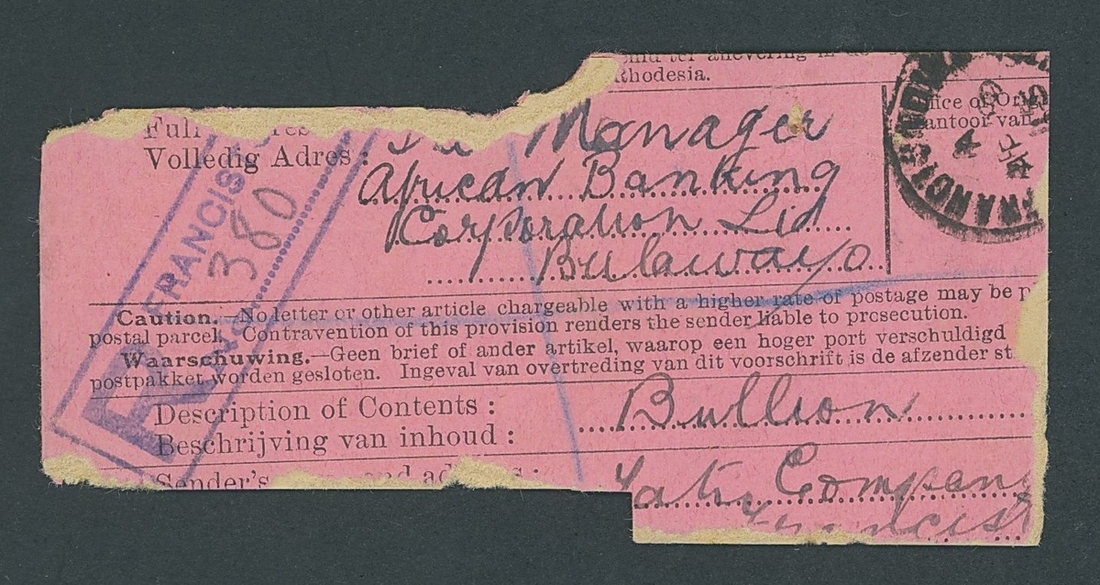 ter
Rhodesia.
Full
Volledig Adres :
Manager
African Banking
Corporation Ltd
Bulawayo
Office of
Kantoor van
FRANCIS
380
R
Caution.—No letter or other article chargeable with a higher rate of postage may be
postal parcel. Contravention of this provision renders the sender liable to prosecution.
Waarschuwing.—Geen brief of ander artikel, waarop een hoger port verschuldigd
postpakket worden gesloten. Ingeval van overtreding van dit voorschrift is de afzender
Description of Contents :
Beschrijving van inhoud :
Bullion
Sender's
Tati Compan
Francist